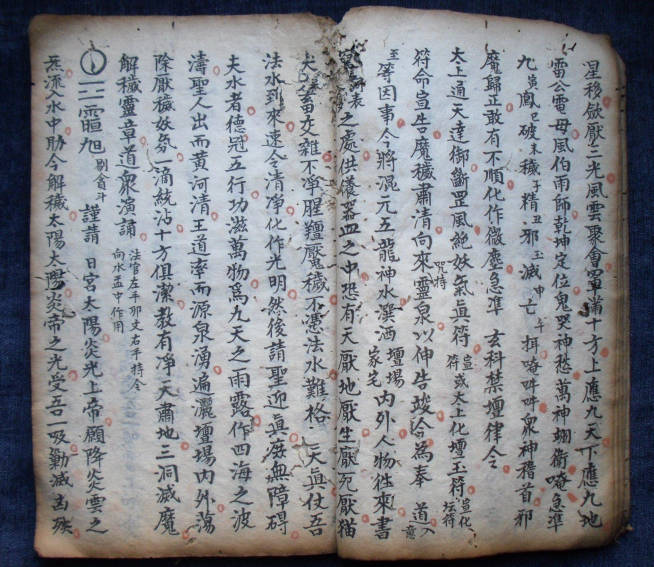 星移斂厭三光風雲聚會罩滿十方上應九天下應九地
雷公電母風伯雨師乾坤定位鬼哭神愁萬神翊衛唵急準
九 寅 鳳 巳 破 未 穢 子 精 丑 邪 玉 滅 申 亡 午 揖唵吽吽眾神稽首邪
魔歸正敢有不順化作微塵急準 玄科禁壇律令
太上道天達御斷罡風絕妖氣真符 宣符 或太上化壇玉符 宣化坛符
符命宣告魔穢肅清向來靈泉 咒持 以伸告竣給為奉 道入意
至等因事今將混元五龍神水灑洒 壇場家宅 內外人物往來書
之處供養器皿之中恐有天厭地厭生厭死厭猫
犬 六畜交雜不凈腥羶厭穢不憑法水難格 天真仗吾
法水到來速令清凈化作光明然後請聖迎真並無障碍
夫水者德冠五行功滋萬物為九天之雨露作四海之波
濤聖人出而黄河清王道率而源泉湧遍灑壇場內外蕩
除厭穢妖氛一滴統沾十方俱潔教有凈天肅地三洞滅魔
解穢靈章道眾演誦 法官左手邪文右手持令向水盂中作用
旭 謹請 日宮太陽炎光上帝願降炎雲之
炁流入水中助今解穢太陽太陽炎帝之光受吾一吸勦滅凶殃